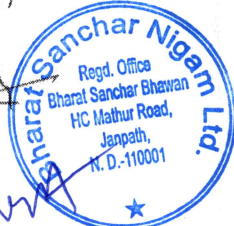 Bharat Sanchar Nigam Ltd.
Regd. Office
Bharat Sanchar Bhawan
HC Mathur Road,
Janpath,
N. D.-110001